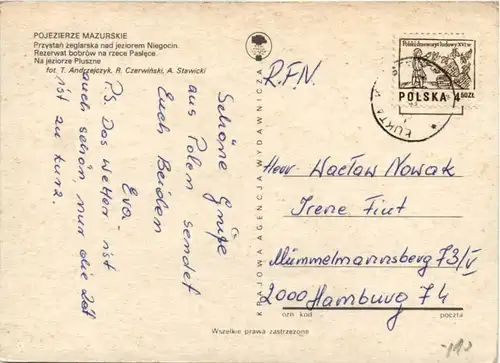 POJEZIERZE MAZURSKIE
Przystań żeglarska nad jeziorem Niegocin.
Rezerwat bobrów na rzece Pasłęce.
Na jeziorze Pluszne
fot. T. Andrzejczyk, R. Czerwiński, A. Stawicki
Schöne Grüße
aus Polen sendet
Euch Beiden
Eva.
P.S. Das Wetter ist
auch schön, nur die Zeit
ist zu kurz.
KRAJOWA AGENCJA WYDAWNICZA
R.F.N.
Polski drzeworyt ludowy XVI w.
POLSKA 4 50 ZŁ
ŁUKTA
Herr Wacław Nowak
Irene Fiut
Mümmelmannsberg 73/V
2000 Hamburg 74
ozn kod
poczta
Wszelkie prawa zastrzeżone